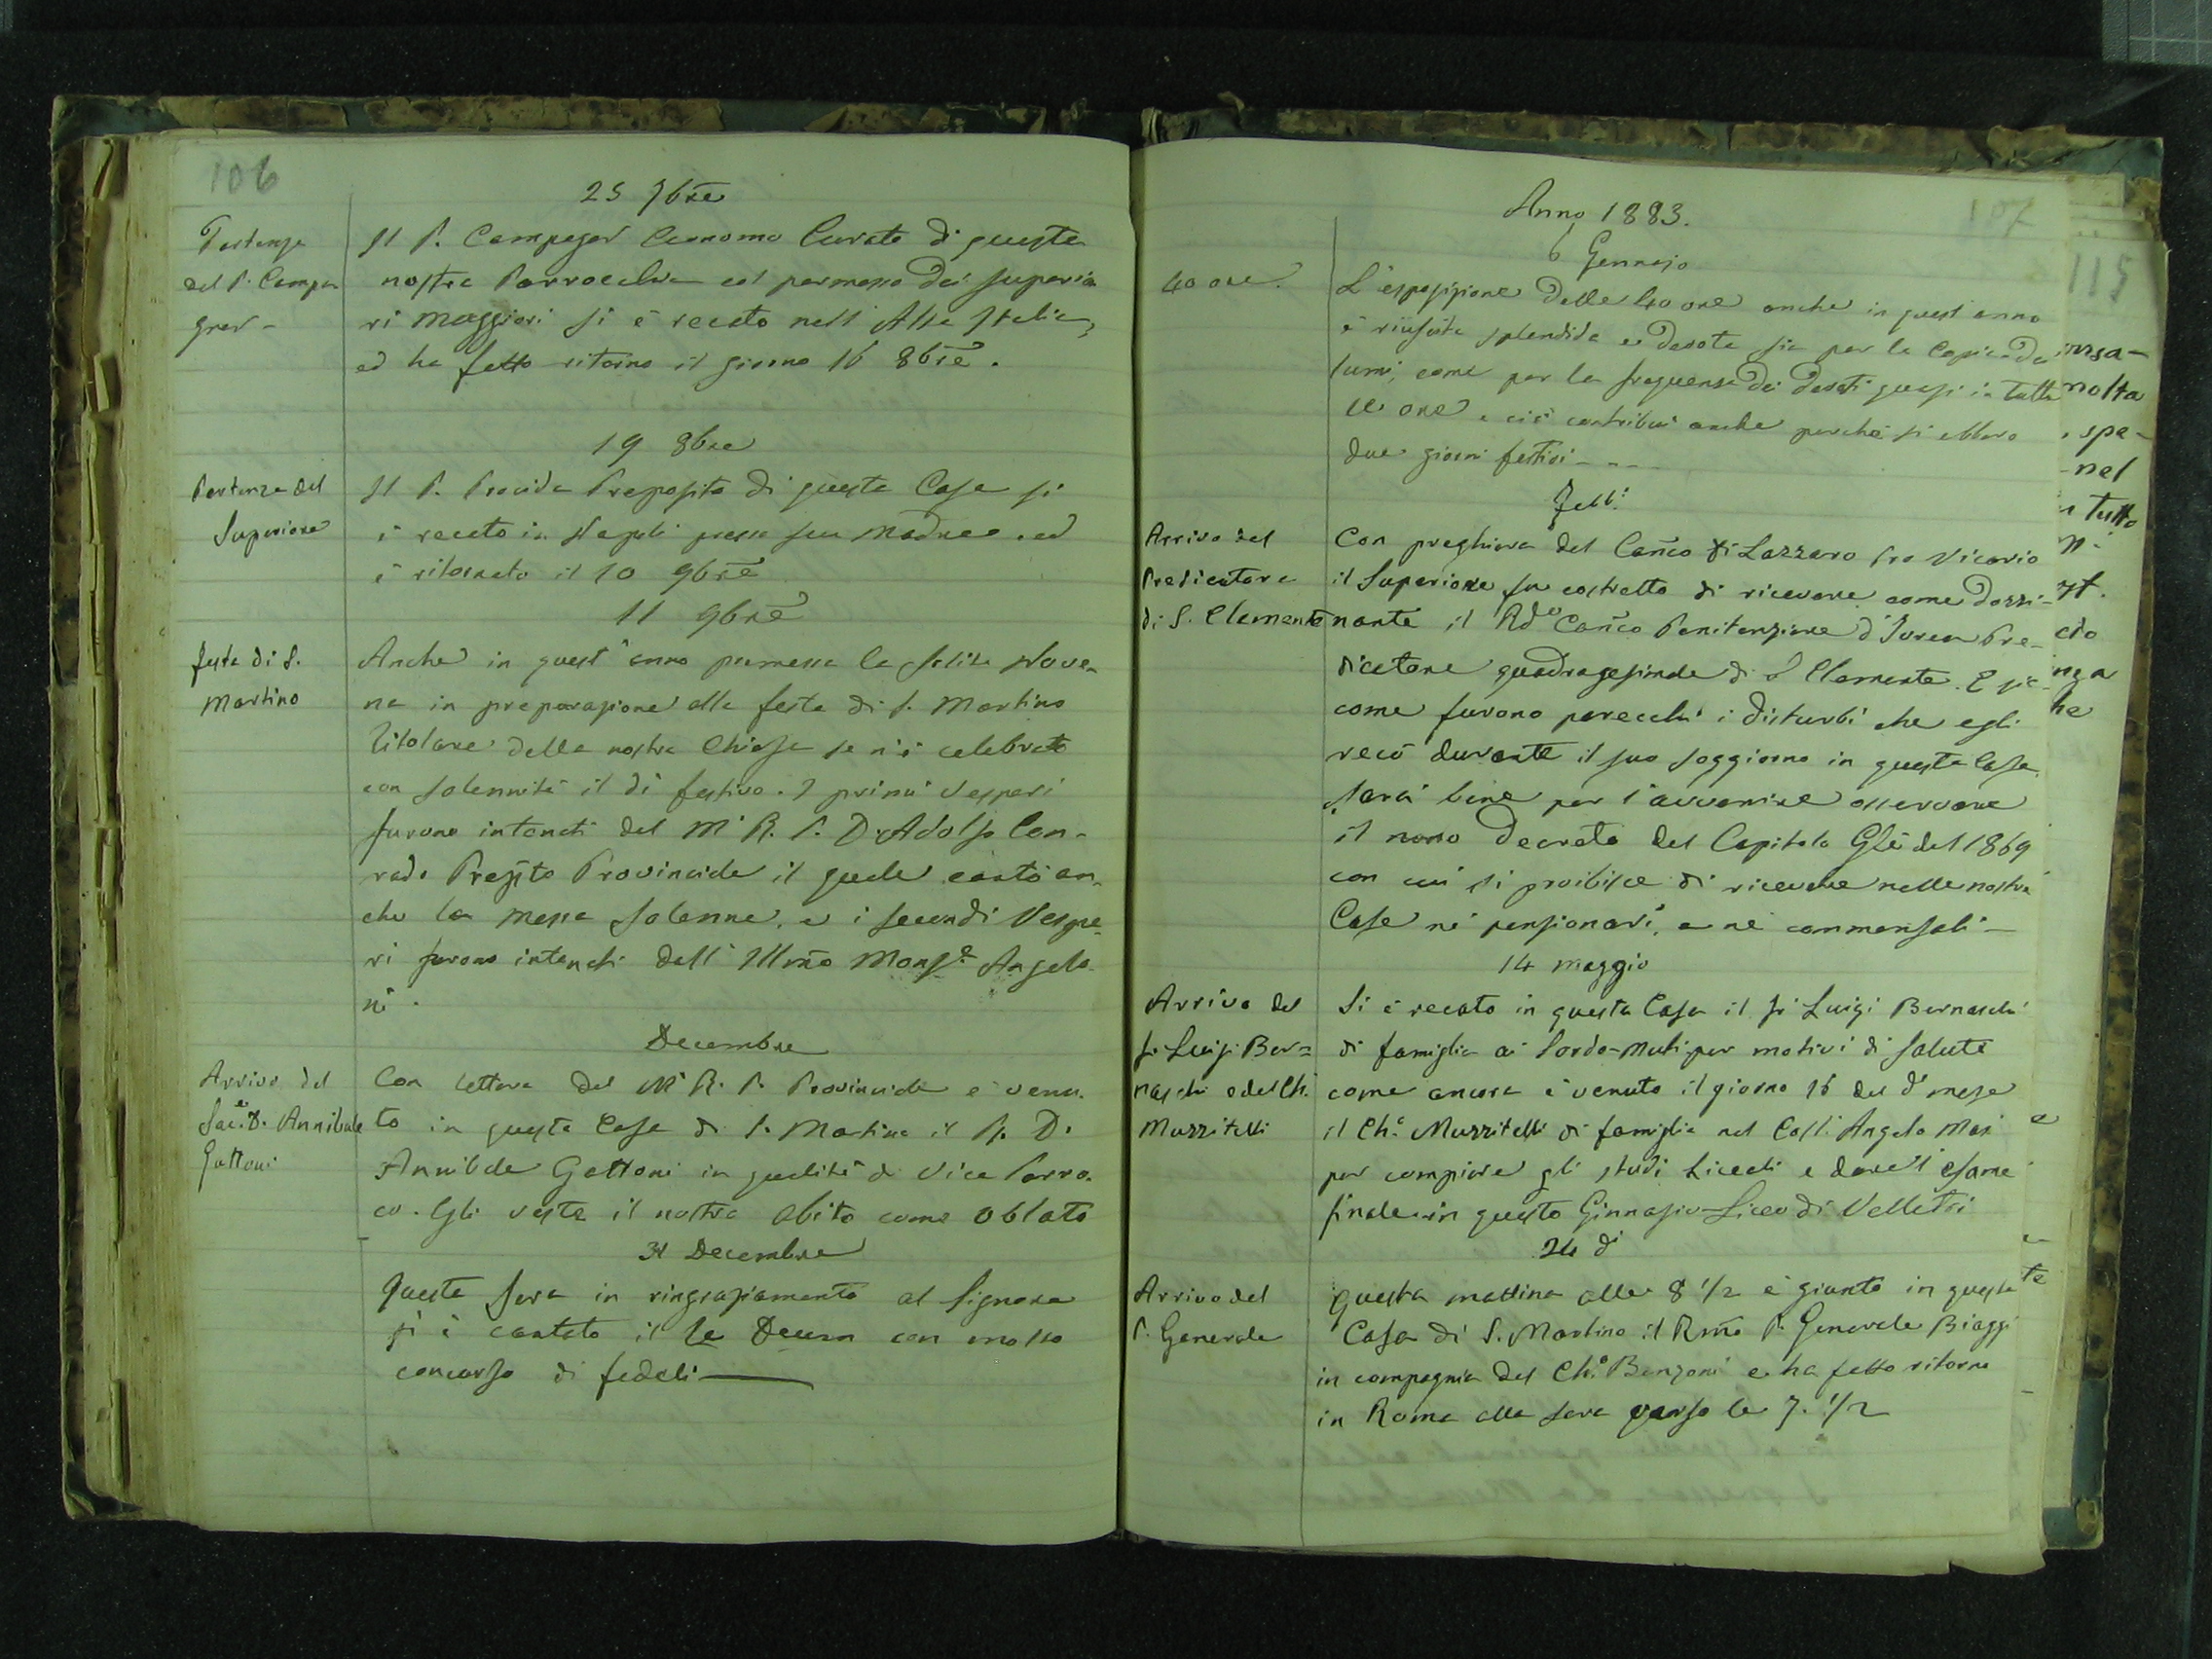 106
25 7bre
Partenza
del P. Campa
gner -
Il P. Campagner Economo Curato di questa
nostra Parrocchia col permesso dei superio
ri maggiori si è recato nell'Alta Italia,
ed ha fatto ritorno il giorno 16 8bre.
19 8bre
Partenza del
Superiore
Il P. Procida Preposito di questa Casa si
è recato in Napoli presso sua madre, ed
è ritornato il 10 9bre
11 9bre
festa di S.
Martino
Anche in quest'anno premessa la solita Nove-
na in preparazione alla festa di S. Martino
titolare della nostra Chiesa se n'è celebrato
con solennità il dì festivo. I primi vesperi
furono intonati dal M. R. P. D. Adolfo Con-
rado Prepto Provinciale il quale cantò an-
che la messa solenne, e i secondi Vespe-
ri furono intonati dall'Illmo Monse Angelo-
ni.
Decembre
Arrivo del
Sace. D. Annibale
Gattoni
Con lettera del M. R. P. Provinciale è venu-
to in questa Casa di S. Martino il R. D.
Annibale Gattoni in qualità di Vice Parro-
co. Egli veste il nostro abito come oblato
31 Decembre
Questa sera in ringraziamento al Signore
si è cantato il Te Deum con molto
concorso di fedeli
107
Anno 1883.
6 Gennajo
40 ore.
L'esposizione delle 40 ore anche in quest'anno
è riuscita splendida e devota sia per la copia de
lumi, come per la frequenza dei devoti quasi in tutte
le ore e ciò contribuì anche perchè si ebbero
due giorni festivi - - -
Febb:
Arrivo del
Predicatore
di S. Clemente
Con preghiera del Canco Di Lazzaro Pro Vicario
il Superiore fu costretto di ricevere come dozzi-
nante il Rdo Canco Penitenziere d'Ivrea Pre-
dicatore quadragesimale di S. Clemente. E sic-
come furono parecchi i disturbi che egli
recò durante il suo soggiorno in questa Casa,
sarà bene per l'avvenire osservare
il nono Decreto del Capitolo Gle del 1869
con cui si proibisce di ricevere nelle nostre
Case nè pensionari, e nè commensali -
14 maggio
Arrivo del
Fr. Luigi Ber=
naschi e del Ch.
Muzzitelli
Si è recato in questa Casa il Fr. Luigi Bernaschi
di famiglia ai Sordo-Muti per motivi di salute
come ancora è venuto il giorno 16 del do mese
il Cho Muzzitelli di famiglia nel Coll. Angelo Mai
per compiere gli studi Liceali e dare l'esame
finale in questo Ginnasio-Liceo di Velletri
24 do
Arrivo del
P. Generale
Questa mattina alle 8 1/2 è giunto in questa
Casa di S. Martino il Rmo P. Generale Biaggi
in compagnia del Cho Benzoni e ha fatto ritorno
in Roma alla sera verso le 7. 1/2
115
molta
spe-
nel
tutto